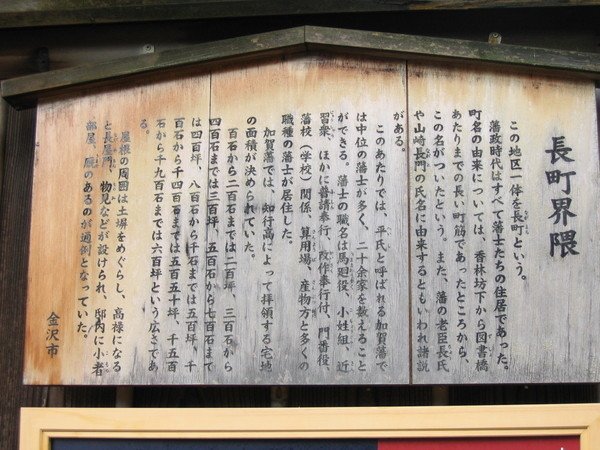 長町界隈
この地区一体を長町という。
藩政時代はすべて藩士たちの住居であった。
町名の由来については、香林坊下から図書橋
あたりまでの長い町筋であったところから、
この名がついたという。また、藩の老臣長氏
や山崎長門の氏名に由来するともいわれ諸説
がある。
このあたりでは、平氏と呼ばれる加賀藩で
は中位の藩士が多く、二十余家を数えること
ができる。藩士の職名は馬廻役、小姓組、近
習衆、ほかに普請奉行、改作奉行付、門番役、
藩校(学校)関係、算用場、産物方と多くの
職種の藩士が居住した。
加賀藩では、知行高によって拝領する宅地
の面積が決められていた。
百石から二百石までは二百坪、三百石から
四百石までは三百坪、五百石から七百石まで
は四百坪、八百石から千石までは五百坪、千
百石から千四百石までは五百五十坪、千五百
石から千九百石までは六百坪という広さであ
る。
屋根の周囲は土塀をめぐらし、高様になる
と長屋門、物見などが設けられ、邸内に小者
部屋、厩のあるのが通例となっていた。
金沢市